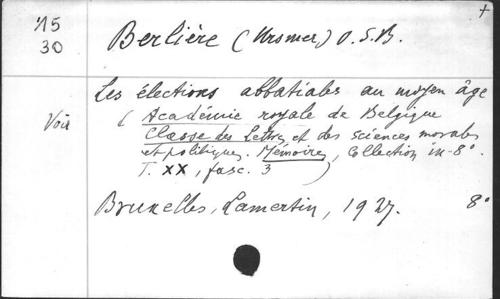 '15
30
Berlière (Ursmer) O.S.B.
Les élections abbatiales au moyen âge
Voir
( Académie royale de Belgique
Classe des Lettres et des sciences morales
et politiques. Mémoires, Collection in-8°.
T. XX, fasc. 3 )
Bruxelles, Lamertin, 1927. 8°